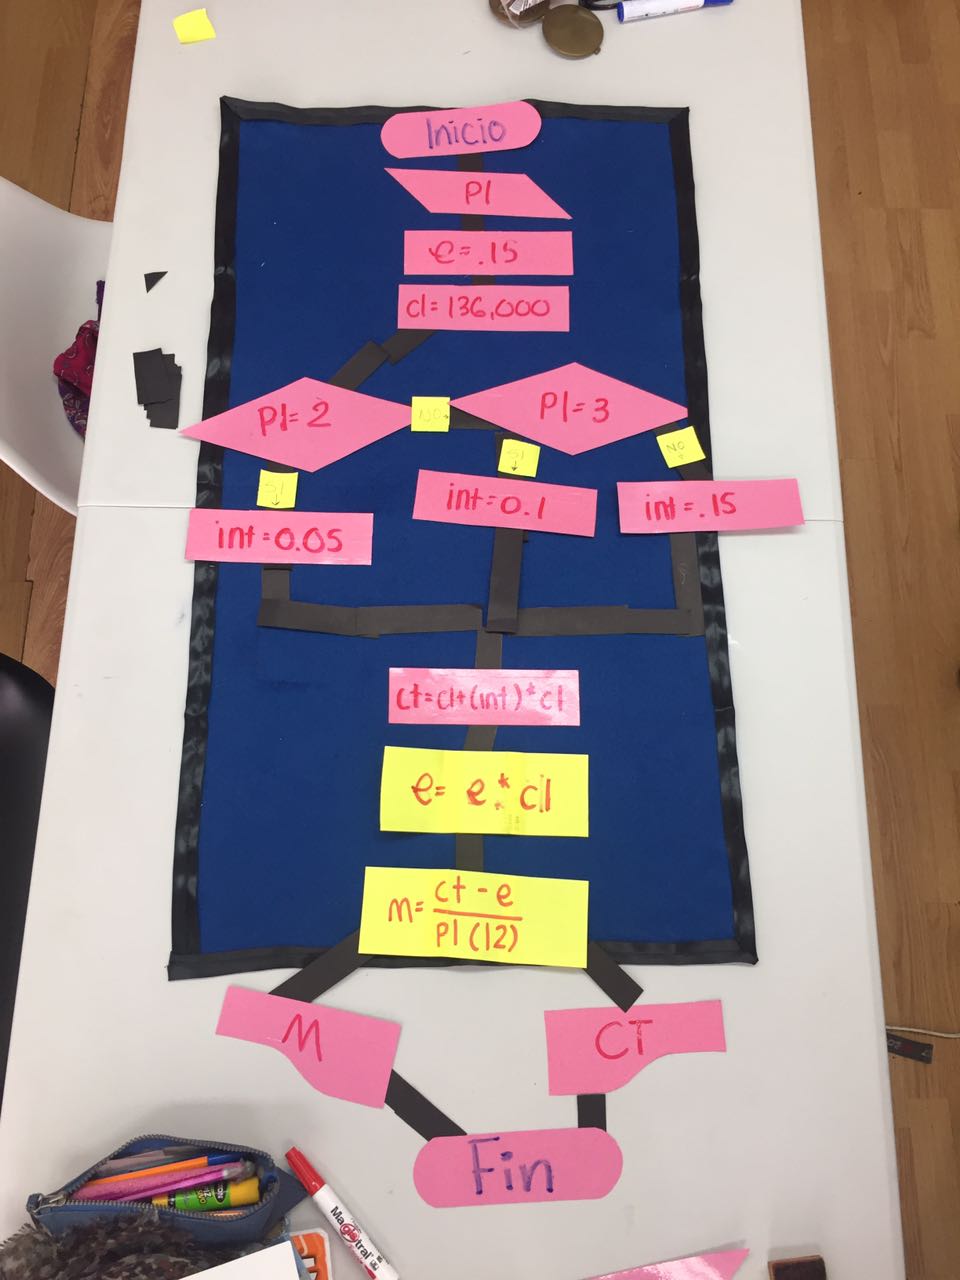 Inicio
Pl
e=.15
cl=136,000
Pl=2
NO
Pl=3
SI
SI
NO
int=0.05
int=0.1
int=.15
ct=cl+(int)*cl
e= e*cl
m= ct - e
Pl (12)
M
CT
Fin
Magistral